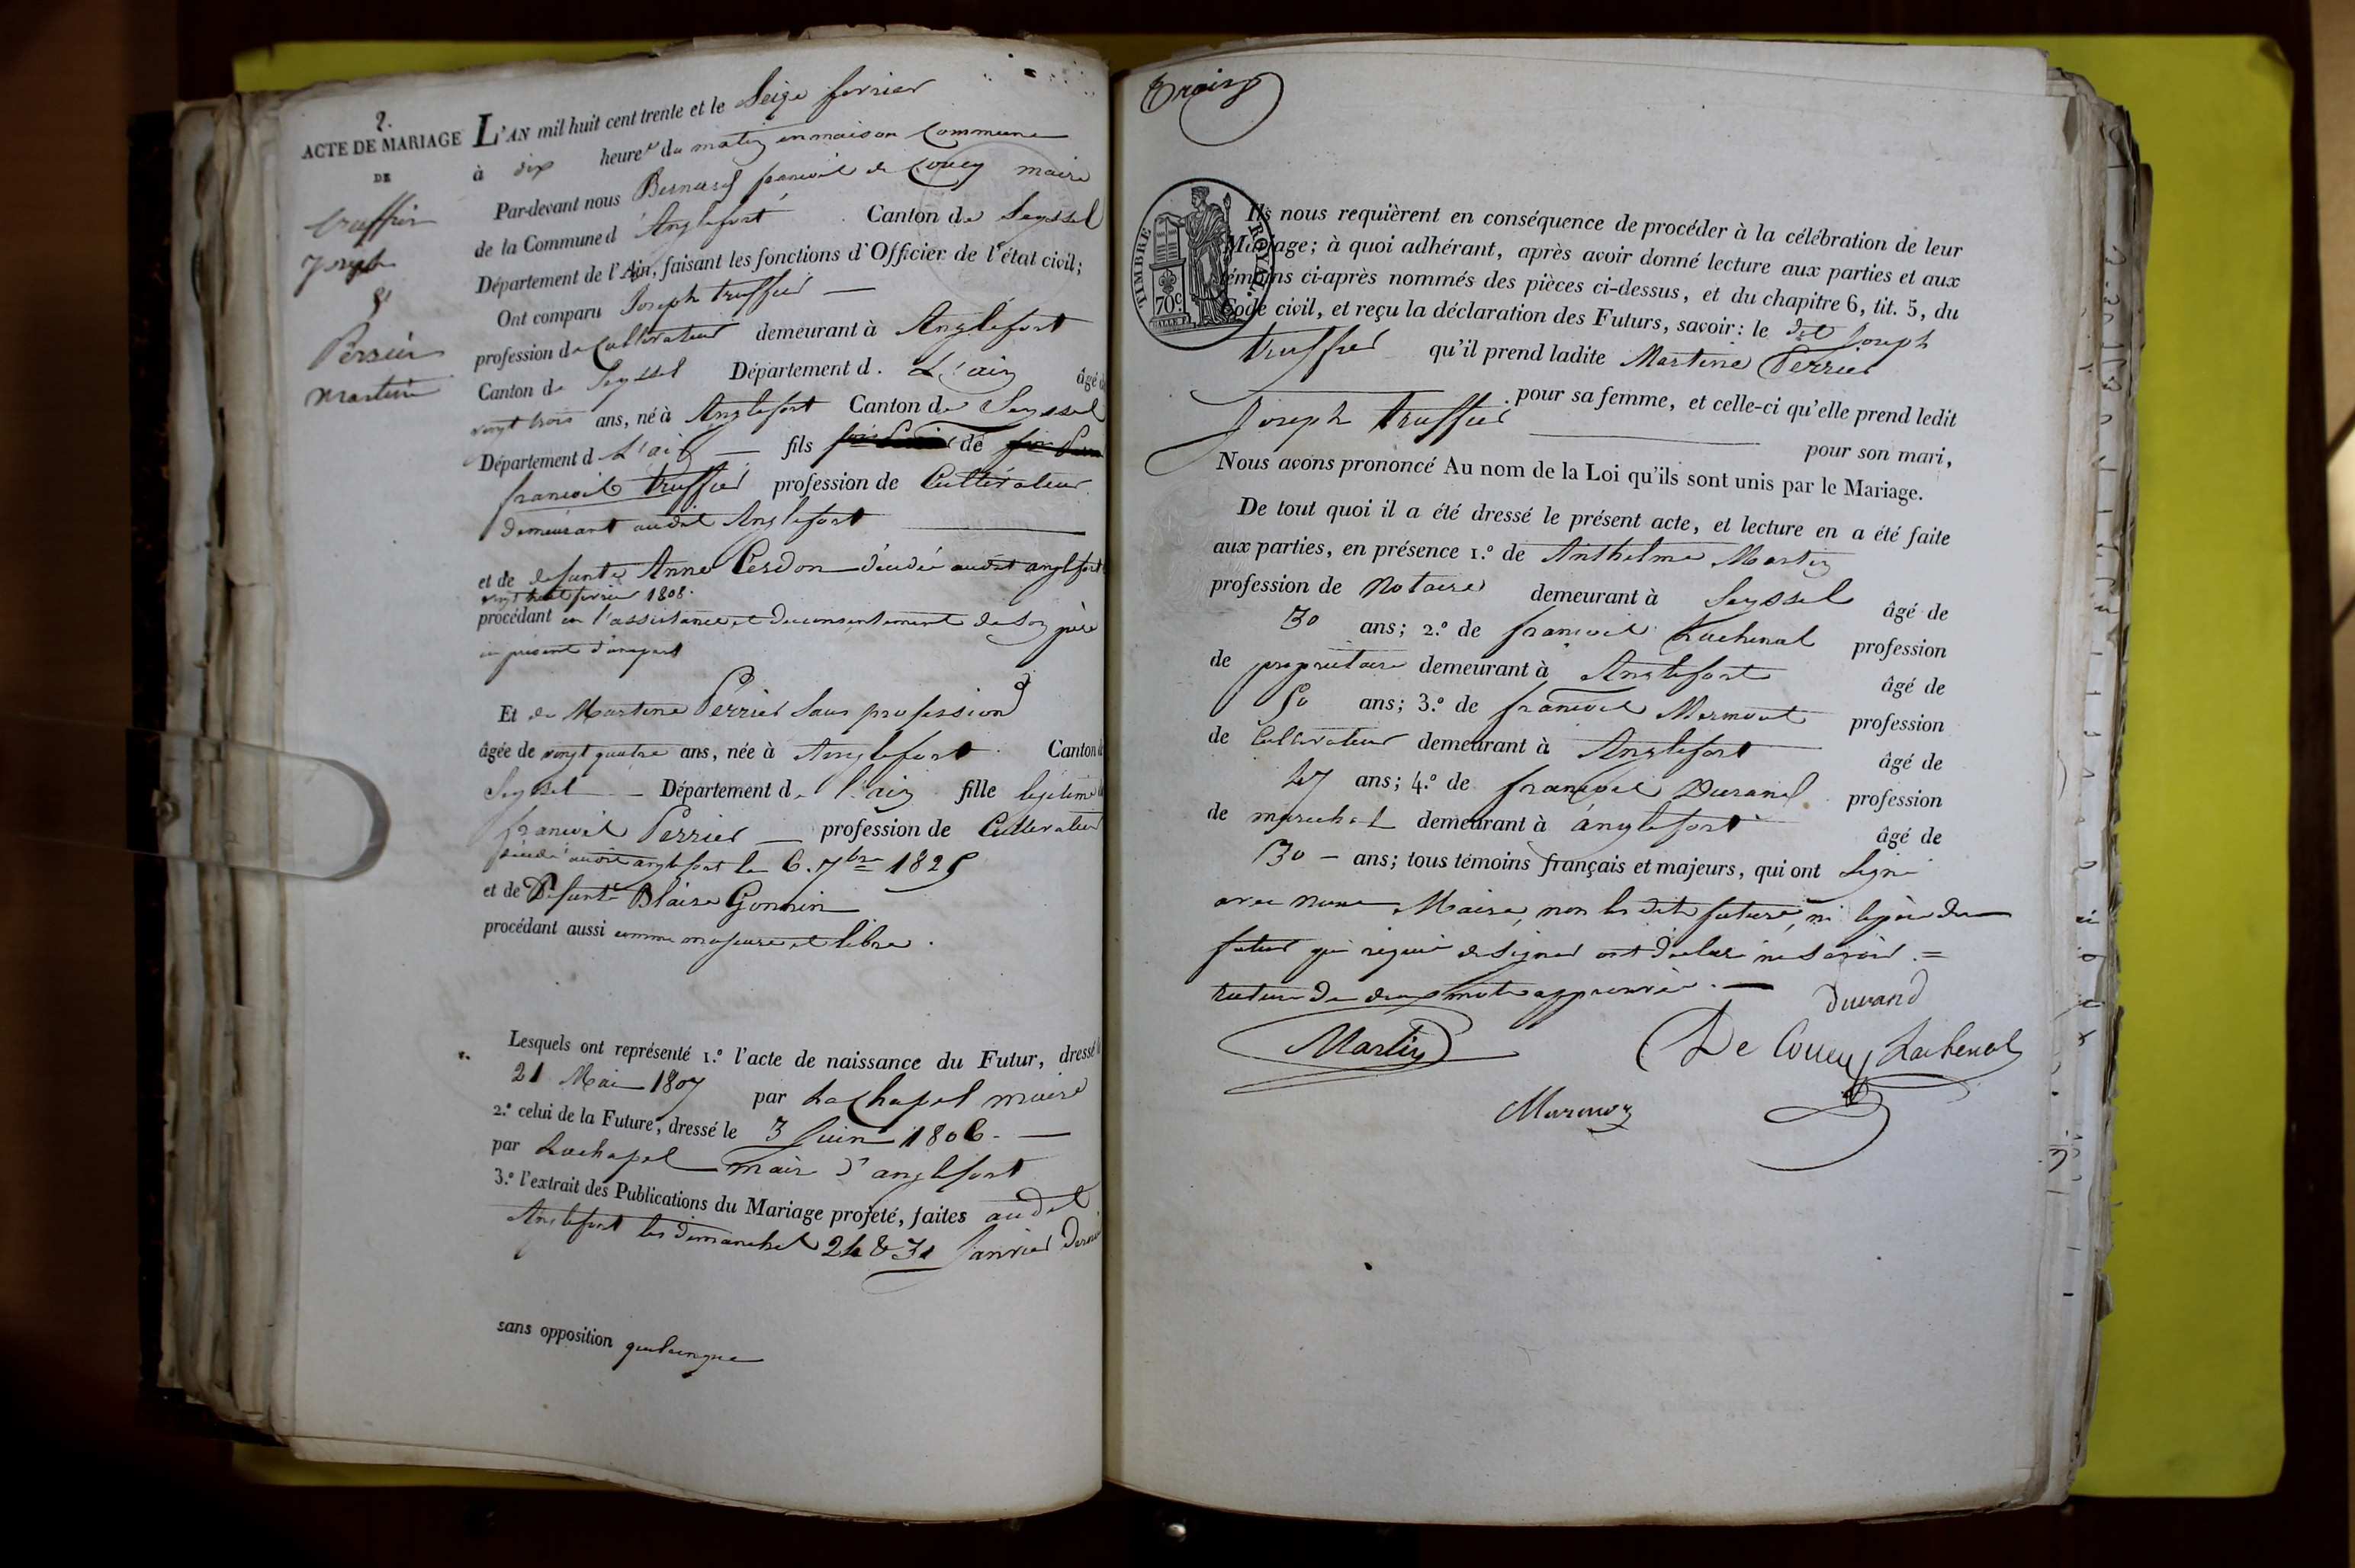 2.
ACTE DE MARIAGE
DE
truffier
Joseph
&
Perrier
Martine
L'AN mil huit cent trente et le Seize fevrier
à dix heures du matin en maison Commune
Par-devant nous Bernard francois de Coucy maire
de la Commune d'Anglefort Canton de Seyssel
Département de l'Ain, faisant les fonctions d'Officier de l'état civil;
Ont comparu Joseph truffier
profession de Cultivateur demeurant à Anglefort
Canton de Seyssel Département d. L'ain âgé d
vingt trois ans, né à Anglefort Canton de Seyssel
Département d L'ain fils de
francois truffier profession de Cultivateur
demeurant audit Anglefort
et de defunte Anne Cerdon décédée audit anglefort
vingt huit fevrier 1808.
procédant en l'assistance et du consentement de son père
ici présent d'une part
Et de Martine Perrier Sans profession
âgée de vingt quatre ans, née à Anglefort Canton de
Seyssel Département d. l'ain fille legitime d
francois Perrier profession de Cultivateur
décédé audit anglefort le 6. 7bre 1825
et de Defunte Blaise Gonnin
procédant aussi comme majeure et libre.
Lesquels ont représenté 1.º l'acte de naissance du Futur, dressé l
21 Mai 1807 par Lachapel maire
2.º celui de la Future, dressé le 3 Juin 1806.
par Lachapel maire d'anglefort
3.º l'extrait des Publications du Mariage projeté, faites audit
Anglefort les dimanches 24 & 31 Janvier dernier
sans opposition quelconque
Trois
TIMBRE ROYAL
70 c.
Ils nous requièrent en conséquence de procéder à la célébration de leur
Mariage; à quoi adhérant, après avoir donné lecture aux parties et aux
témoins ci-après nommés des pièces ci-dessus, et du chapitre 6, tit. 5, du
Code civil, et reçu la déclaration des Futurs, savoir: le dit Joseph
truffier qu'il prend ladite Martine Perrier
pour sa femme, et celle-ci qu'elle prend ledit
Joseph truffier pour son mari,
Nous avons prononcé Au nom de la Loi qu'ils sont unis par le Mariage.
De tout quoi il a été dressé le présent acte, et lecture en a été faite
aux parties, en présence 1.º de Anthelme Martin
profession de Notaire demeurant à Seyssel âgé de
30 ans; 2.º de francois Lachenal profession
de proprietaire demeurant à Anglefort âgé de
50 ans; 3.º de francois Mermont profession
de Cultivateur demeurant à Anglefort âgé de
47 ans; 4.º de francois Durand profession
de marechal demeurant à anglefort âgé de
30 ans; tous témoins français et majeurs, qui ont Signé
avec nous Maire, non les dits futurs, ni le père du
futur qui requis de signer ont déclaré ne savoir. =
rature de deux mots approuvée.
Durand
Martin
De Coucy
Lachenal